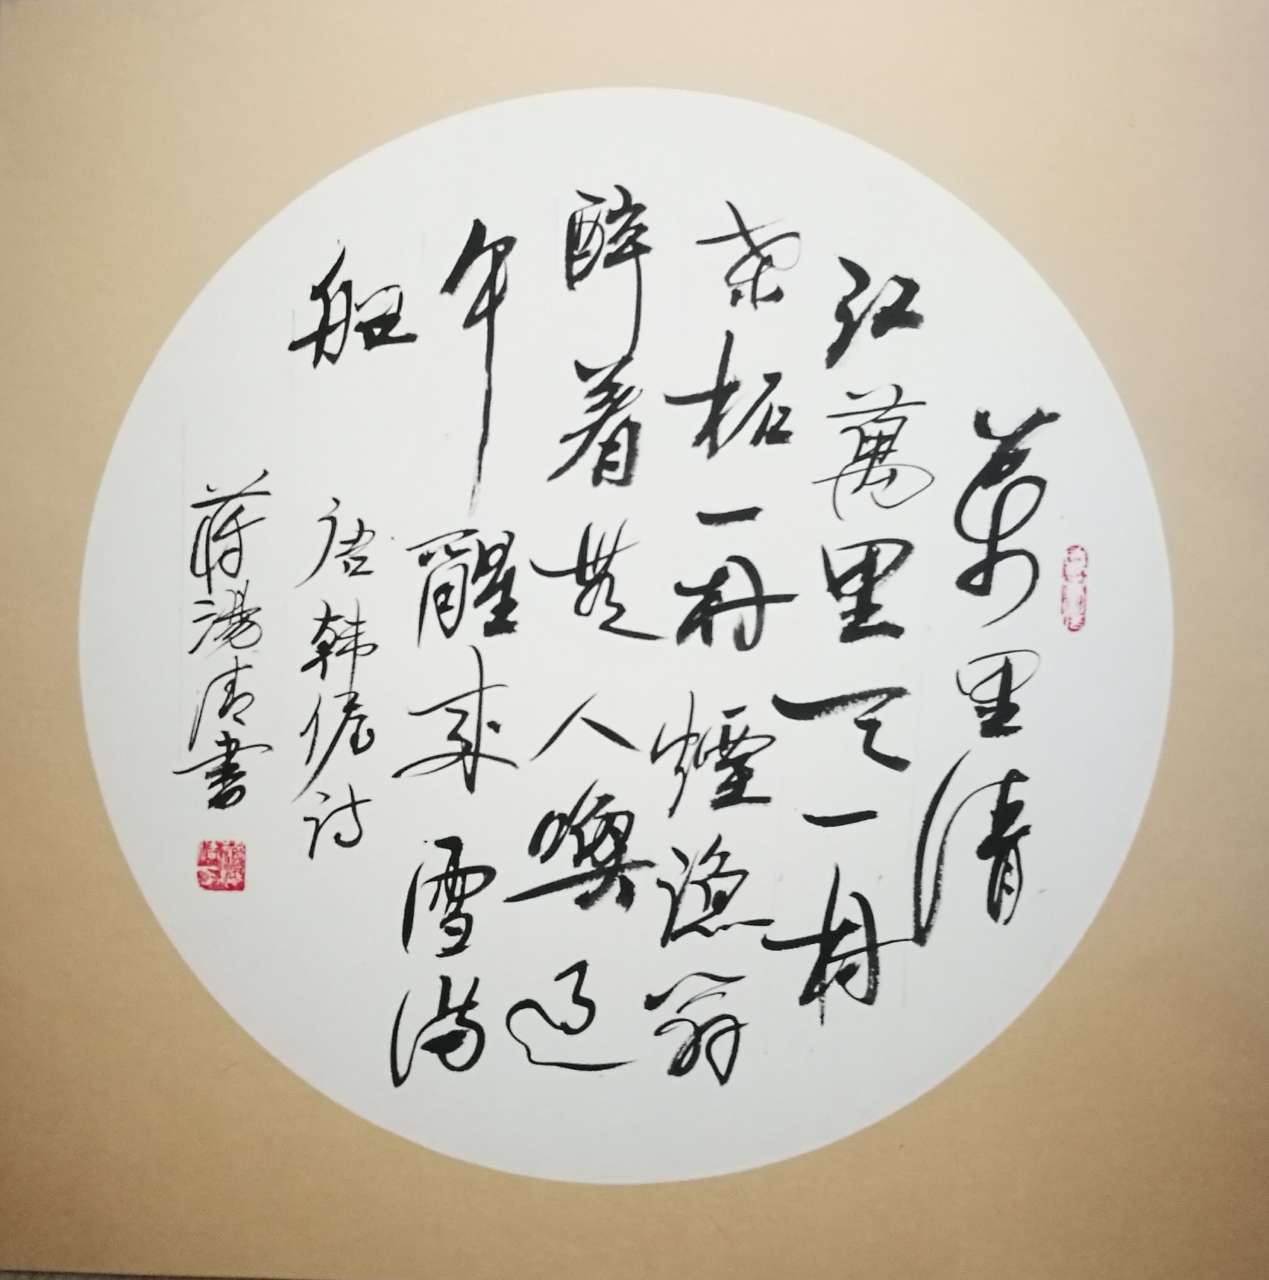 萬里清
江萬里天一村
桑柘一村煙漁翁
醉着無人喚過
午醒来雪满
船 唐韩偓诗
蒋湯清書